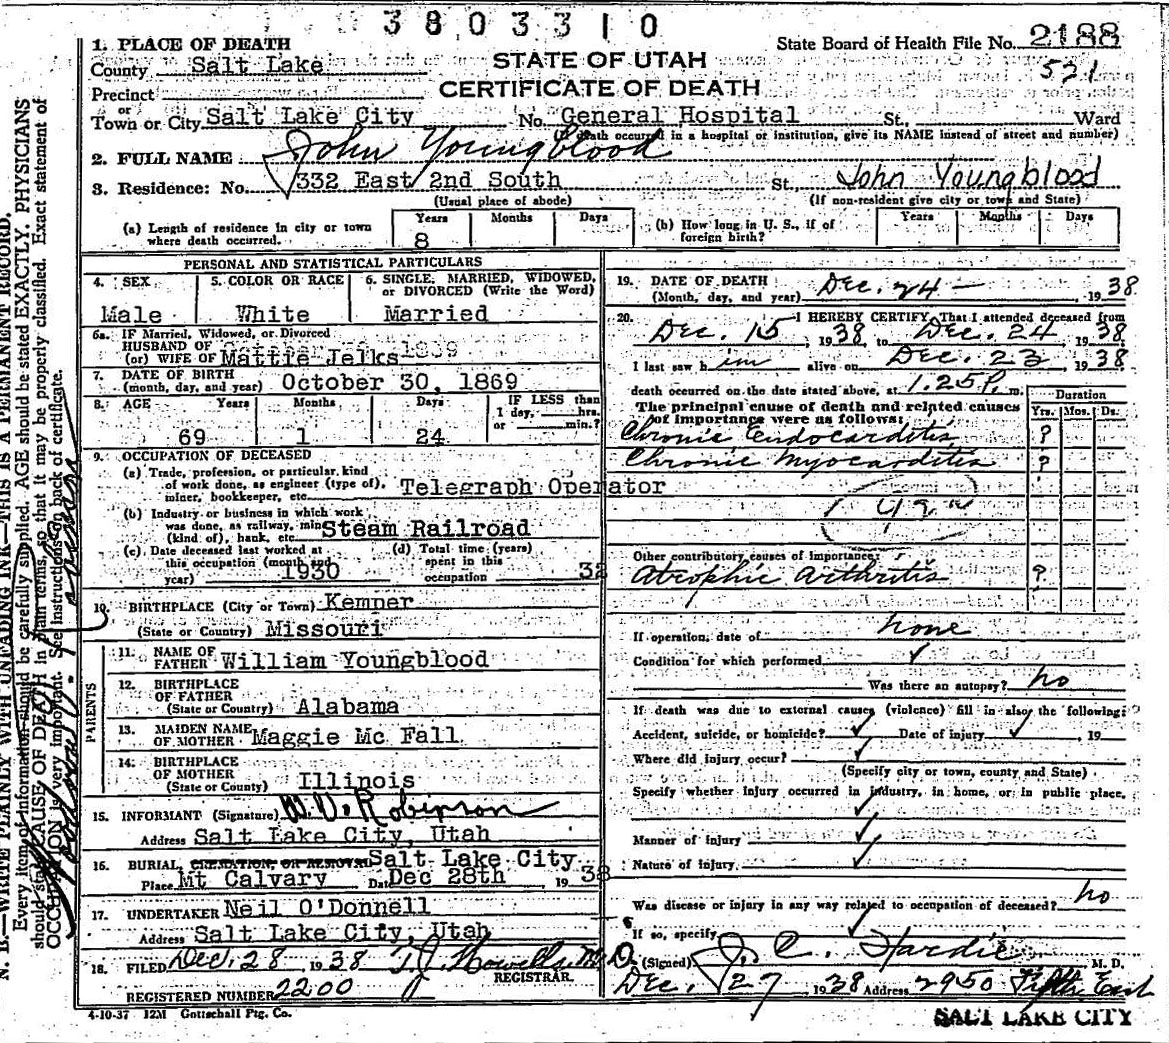 3803310
State Board of Health File No. 2188
521
1. PLACE OF DEATH
STATE OF UTAH
County Salt Lake
CERTIFICATE OF DEATH
Precinct
or
Town or City Salt Lake City No. General Hospital St., Ward
(If death occurred in a hospital or institution, give its NAME instead of street and number)
2. FULL NAME John Youngblood
3. Residence: No. 332 East 2nd South St. John Youngblood
(Usual place of abode) (If non-resident give city or town and State)
(a) Length of residence in city or town where death occurred. Years 8 Months Days
(b) How long in U. S., if of foreign birth? Years Months Days
PERSONAL AND STATISTICAL PARTICULARS
4. SEX 5. COLOR OR RACE 6. SINGLE, MARRIED, WIDOWED,
or DIVORCED (Write the Word)
Male White Married
6a. IF Married, Widowed, or Divorced
HUSBAND OF
(or) WIFE OF Mattie Jelks
7. DATE OF BIRTH
(month, day, and year) October 30, 1869
8. AGE Years Months Days IF LESS than
1 day, hrs.
or min.?
69 1 24
9. OCCUPATION OF DECEASED
(a) Trade, profession, or particular kind
of work done, as engineer (type of),
miner, bookkeeper, etc. Telegraph Operator
(b) Industry or business in which work
was done, as railway, mine
(kind of), bank, etc. Steam Railroad
(c) Date deceased last worked at
this occupation (month and
year) 1930
(d) Total time (years)
spent in this
occupation 32
10. BIRTHPLACE (City or Town) Kemper
(State or Country) Missouri
PARENTS
11. NAME OF
FATHER William Youngblood
12. BIRTHPLACE
OF FATHER
(State or Country) Alabama
13. MAIDEN NAME
OF MOTHER Maggie Mc Fall
14. BIRTHPLACE
OF MOTHER
(State or Country) Illinois
15. INFORMANT (Signature) W. V. Robinson
Address Salt Lake City, Utah
16. BURIAL, CREMATION, OR REMOVAL Salt Lake City
Place Mt Calvary Date Dec 28th 1938
17. UNDERTAKER Neil O'Donnell
Address Salt Lake City, Utah
18. FILED Dec. 28 1938 T. J. Howells M.D.
REGISTRAR.
REGISTERED NUMBER 2200
4-10-37 12M Gottschall Ptg. Co.
19. DATE OF DEATH
(Month, day, and year) Dec. 24 — , 1938
20. I HEREBY CERTIFY, That I attended deceased from
Dec. 15, 1938, to Dec. 24, 1938,
I last saw him alive on Dec. 23, 1938
death occurred on the date stated above, at 1.25 P. m.
The principal cause of death and related causes
of importance were as follows:
Duration
Yrs. Mos. Ds.
Chronic Endocarditis ?
Chronic Myocarditis ?
Other contributory causes of importance:
Atrophic arthritis ?
If operation, date of none
Condition for which performed
Was there an autopsy? no
If death was due to external causes (violence) fill in also the following:
Accident, suicide, or homicide? Date of injury , 19
Where did injury occur?
(Specify city or town, county and State)
Specify whether injury occurred in industry, in home, or in public place,
Manner of injury
Nature of injury
Was disease or injury in any way related to occupation of deceased? no
If so, specify
(Signed) J. C. Hardie M. D.
Dec. 27 1938 Address 2950 Fifth East
SALT LAKE CITY
N. B.—WRITE PLAINLY WITH UNFADING INK—THIS IS A PERMANENT RECORD.
Every item of information should be carefully supplied. AGE should be stated EXACTLY. PHYSICIANS
should state CAUSE OF DEATH in plain terms, so that it may be properly classified. Exact statement of
OCCUPATION is very important. See Instructions on back of certificate.